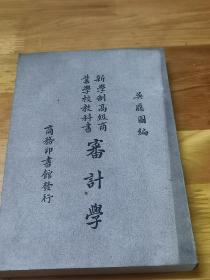 吳應圖編
新學制高級商
業學校教科書
審計學
商務印書館發行